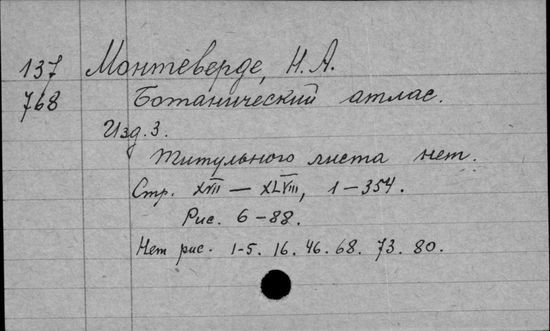 137 Монтеверде, Н.А.
768 Ботанический атлас.
Изд. 3.
Титульного листа нет.
Стр. XVII — XLVIII, 1 – 354.
Рис. 6 – 88.
Нет рис. 1-5. 16. 46. 68. 73. 80.